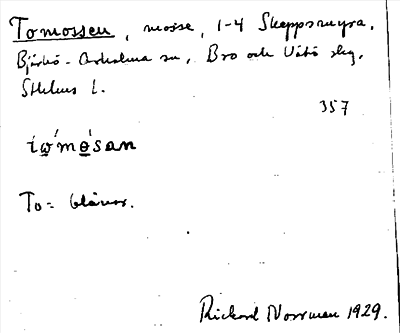 Tomossen, mosse, 1-4 Skeppsmyra,
Björkö-Arholma sn, Bro och Vätö skg,
Sthlms l.
357
To = blånor.
Richard Norrman 1929.